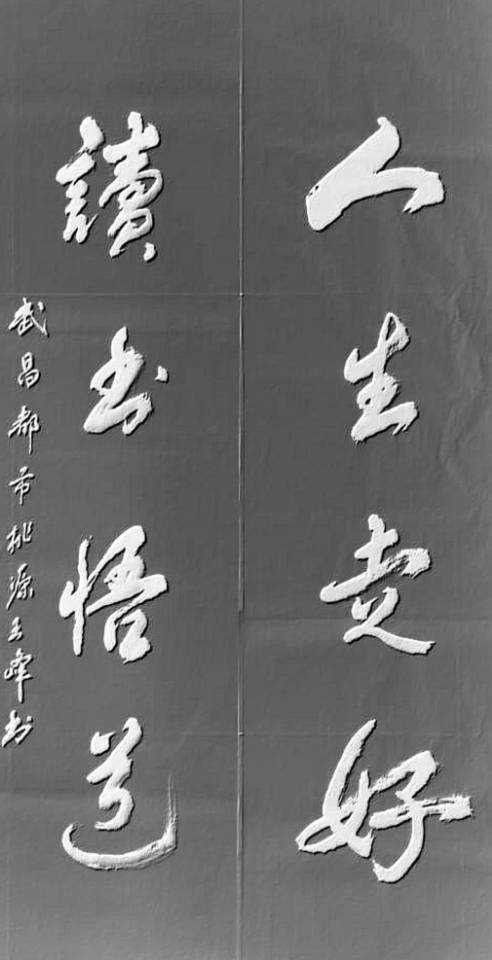 人生走好
讀书悟道
武昌都市桃源王峰书